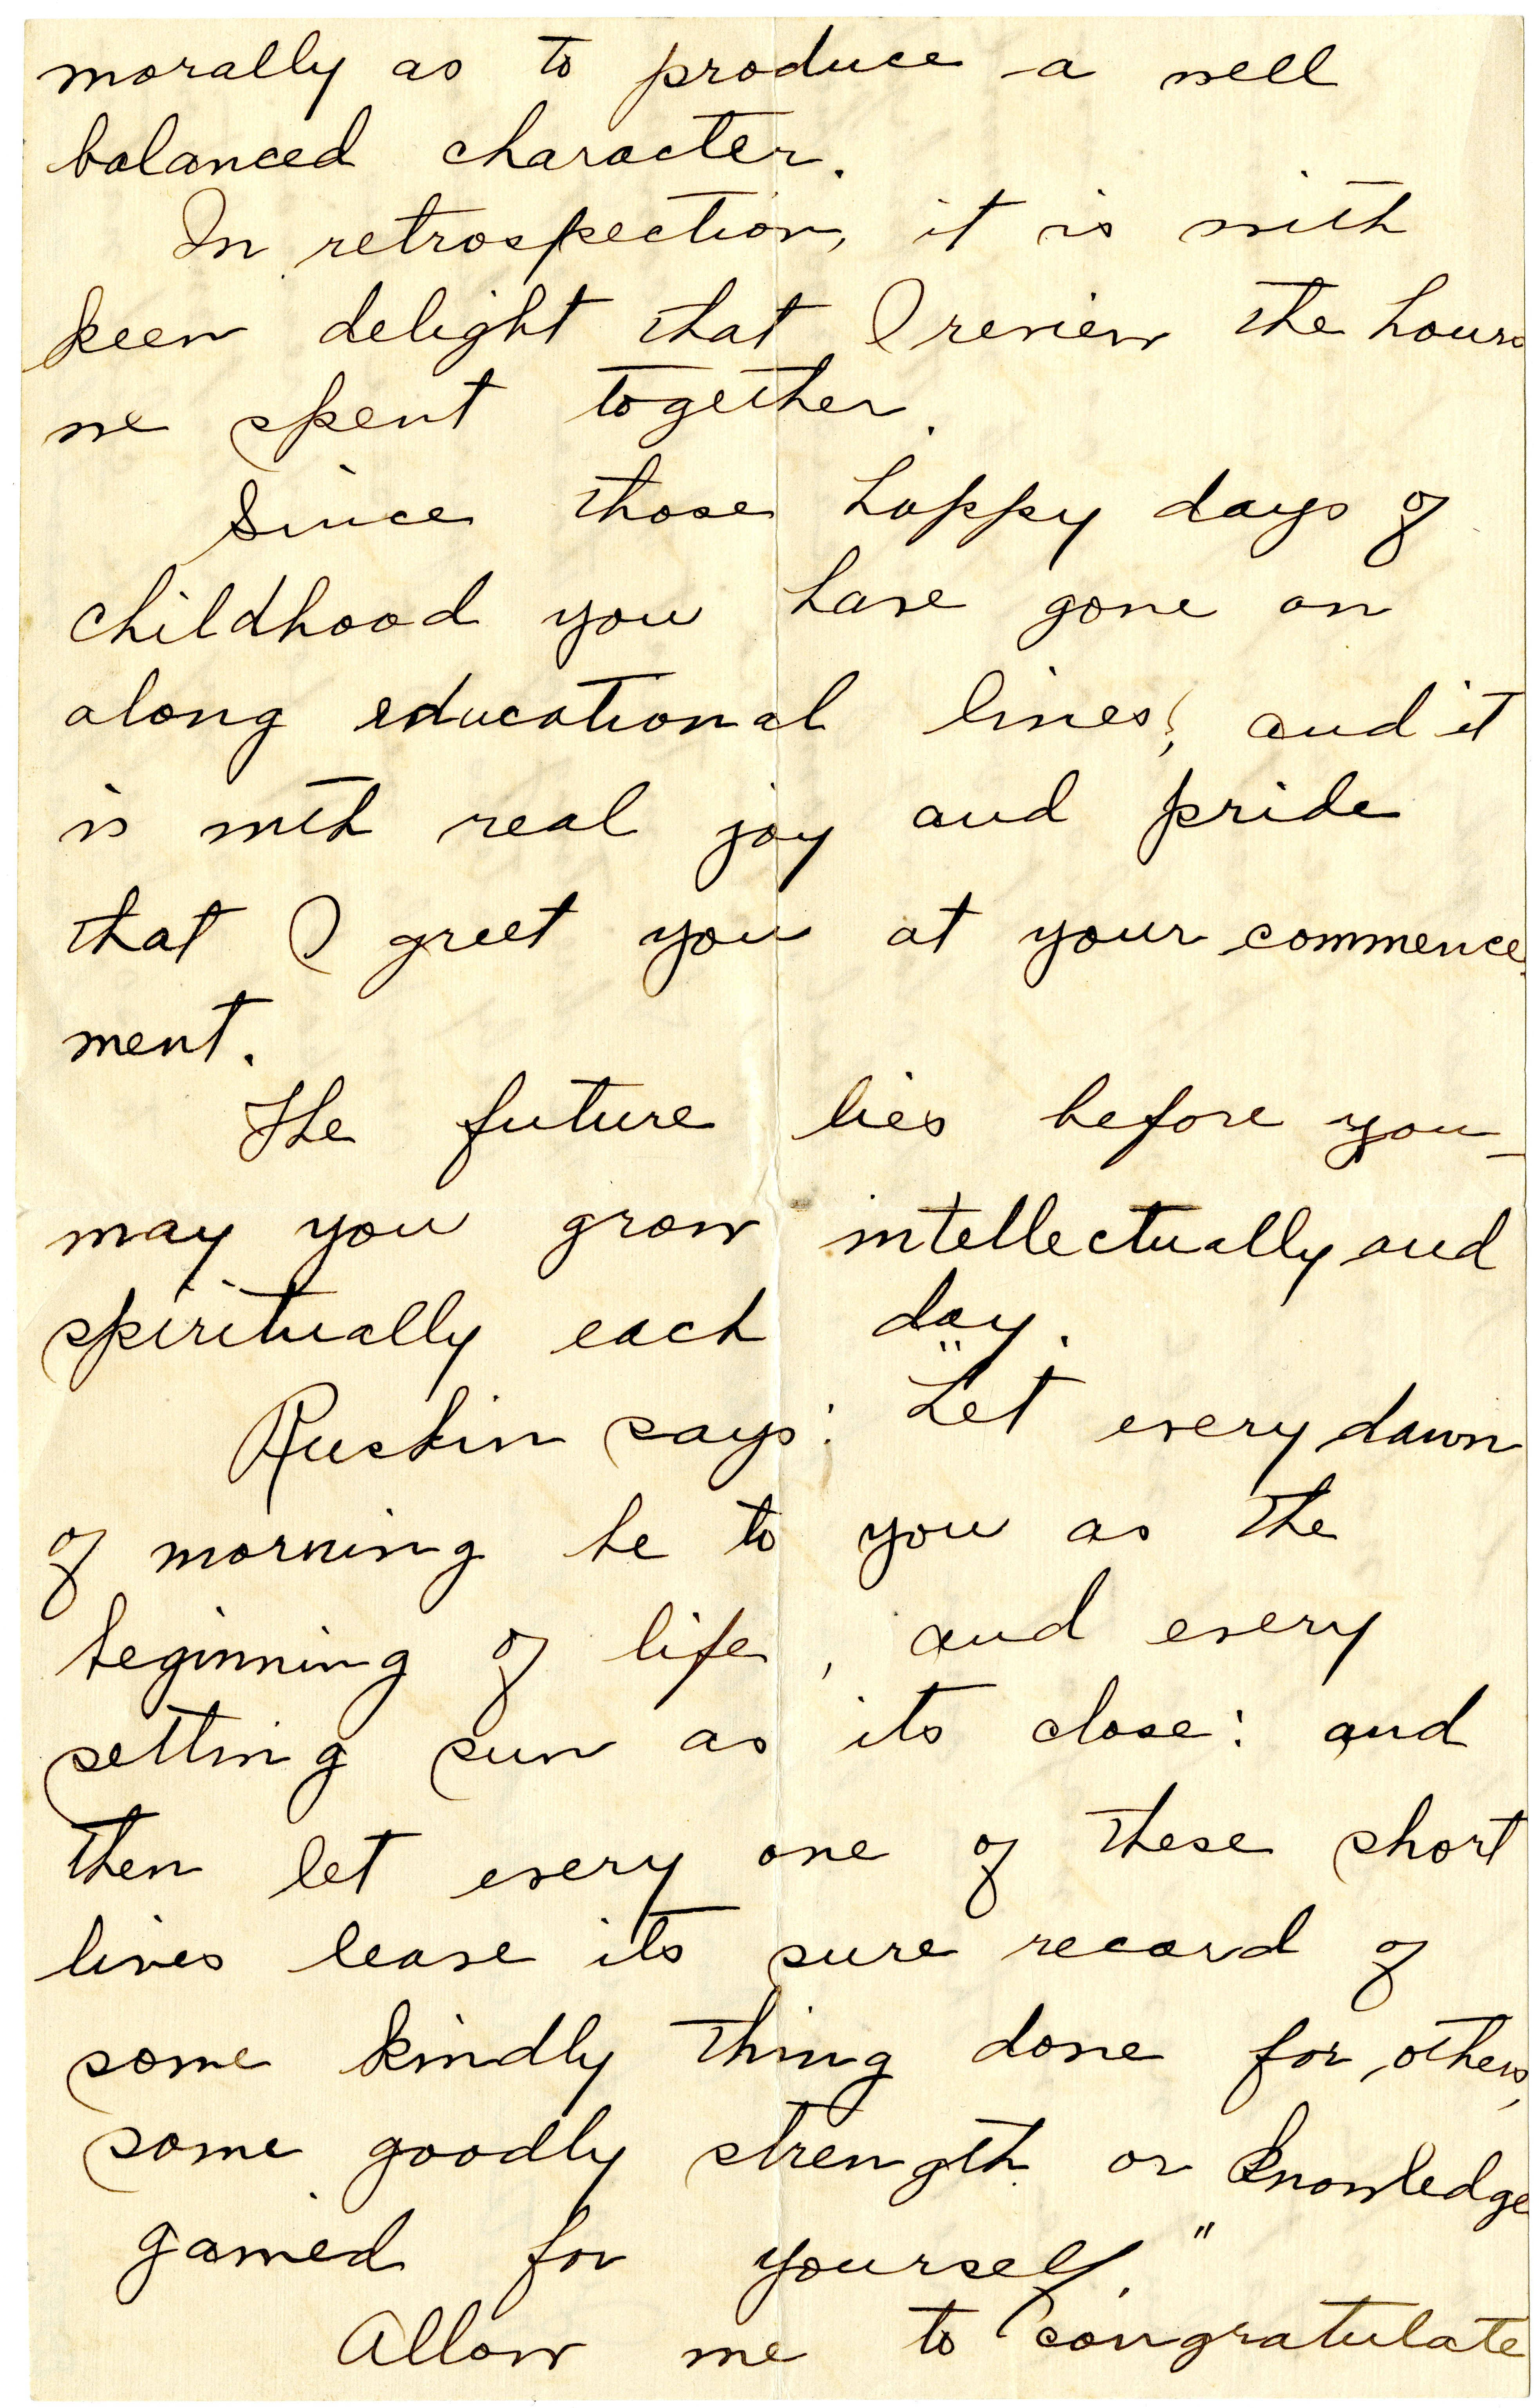 morally as to produce a well
balanced character.
In retrospection, it is with
keen delight that I review the hours
we spent together.
Since those happy days of
childhood you have gone on
along educational lines; and it
is with real joy and pride
that I greet you at your commence-
ment.
The future lies before you—
may you grow intellectually and
spiritually each day.
Ruskin says: "Let every dawn
of morning be to you as the
beginning of life, and every
setting sun as its close: and
then let every one of these short
lives leave its sure record of
some kindly thing done for others,
some goodly strength or knowledge
gained for yourself."
Allow me to congratulate